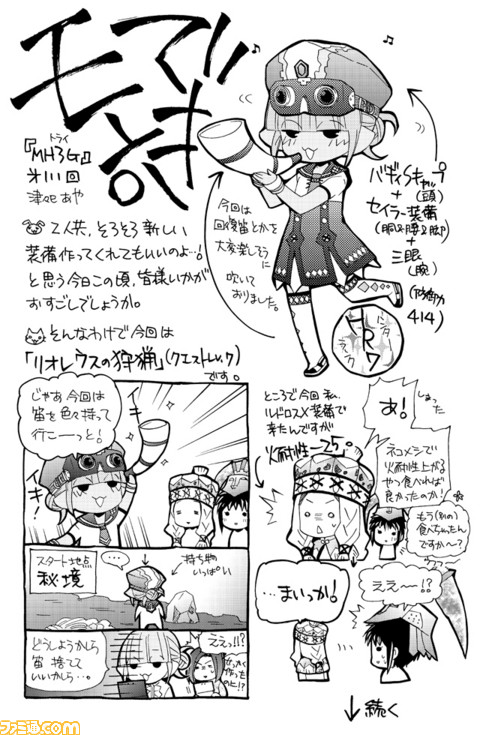 モマリ
とき。
トライ
『MH3G』
オ111回
津々巳あや
2人共、そろそろ新しい
装備作ってくれてもいいのよ…!
と思う今日この頃、皆様いかが
おすごしでしょうか。
そんなわけで今回は
「リオレウスの狩猟」(クエストLv.7)
です。
今回は
回復笛とかを
大変楽しそうに
吹いて
おりました。
バギィSキャップ
(頭)
+
セイラー装備
(胴&腰&脚)
+
三眼
(腕)
(防御力
414)
ドタ
バタ
じゃあ今回は
笛を色々持って
行こーっと!
イキ!
イキ!
スタート地点
秘境
…
持ち物
いっぱい
どうしようかしら
笛捨てて
いいかしら…。
ええっ!?
せっかく
作った
のに!?
ところで今回私、
ルドロスX装備で
来たんですが
火耐性-25。
あ!
しまった
ネコメシで
火耐性上がる
やつ食べれば
良かったのか!
もう(別の)
食べちゃったん
ですか〜?
…まいっか!
ええ〜!?
↓続く
ファミ通.com